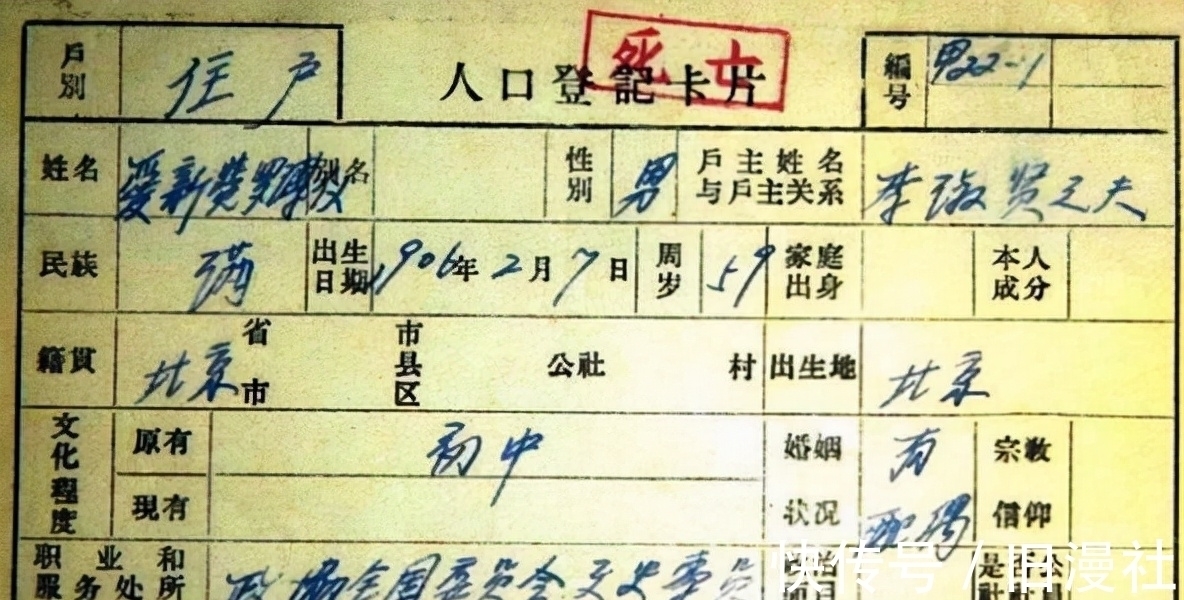 死亡
戶別 住户 人口登記卡片 編号 男22-1
姓名 爱新觉罗溥仪 别名 性別 男 戶主姓名与戶主关系 李淑贤之夫
民族 满 出生日期 1906年2月7日 周岁 59 家庭出身 本人成分
籍貫 北京 省市 市县区 公社 村 出生地 北京
文化程度 原有 初中 婚姻状况 有配偶 宗教信仰
現有
职业和服务处所 政协全国委员会文史专员
快传号 / 旧漫社